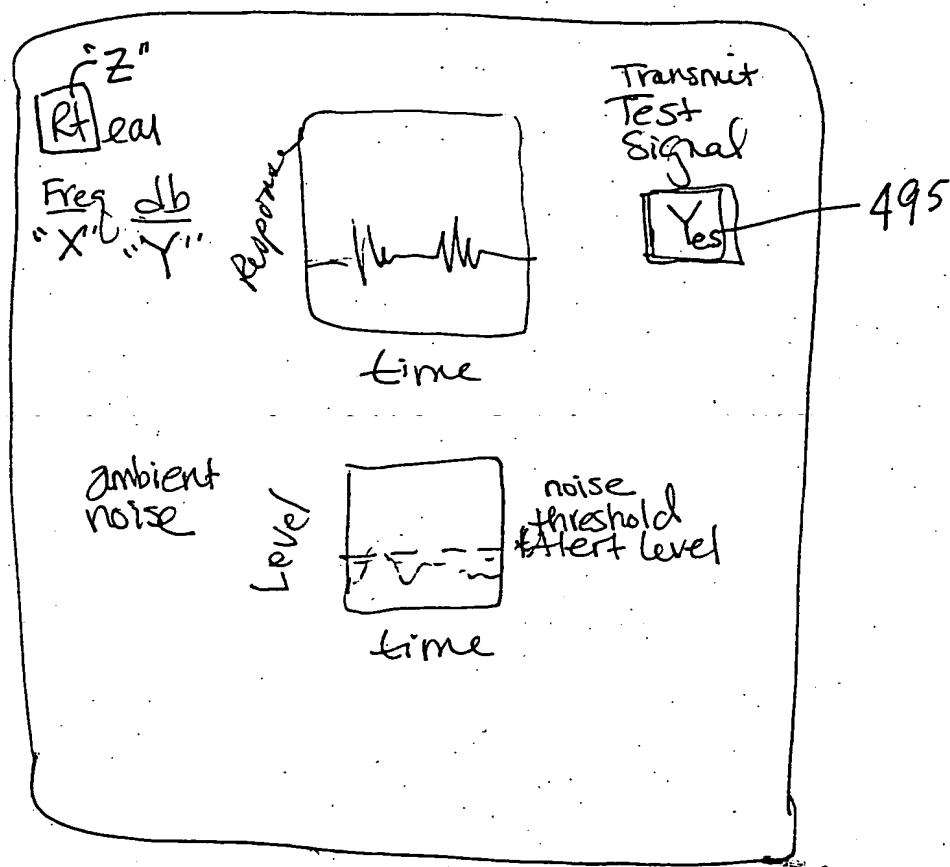 "Z"
Rt ear
Freq db
"X" "Y"
Response
time
Transmit
Test
Signal
Yes
495
ambient
noise
Level
time
noise
threshold
*Alert level